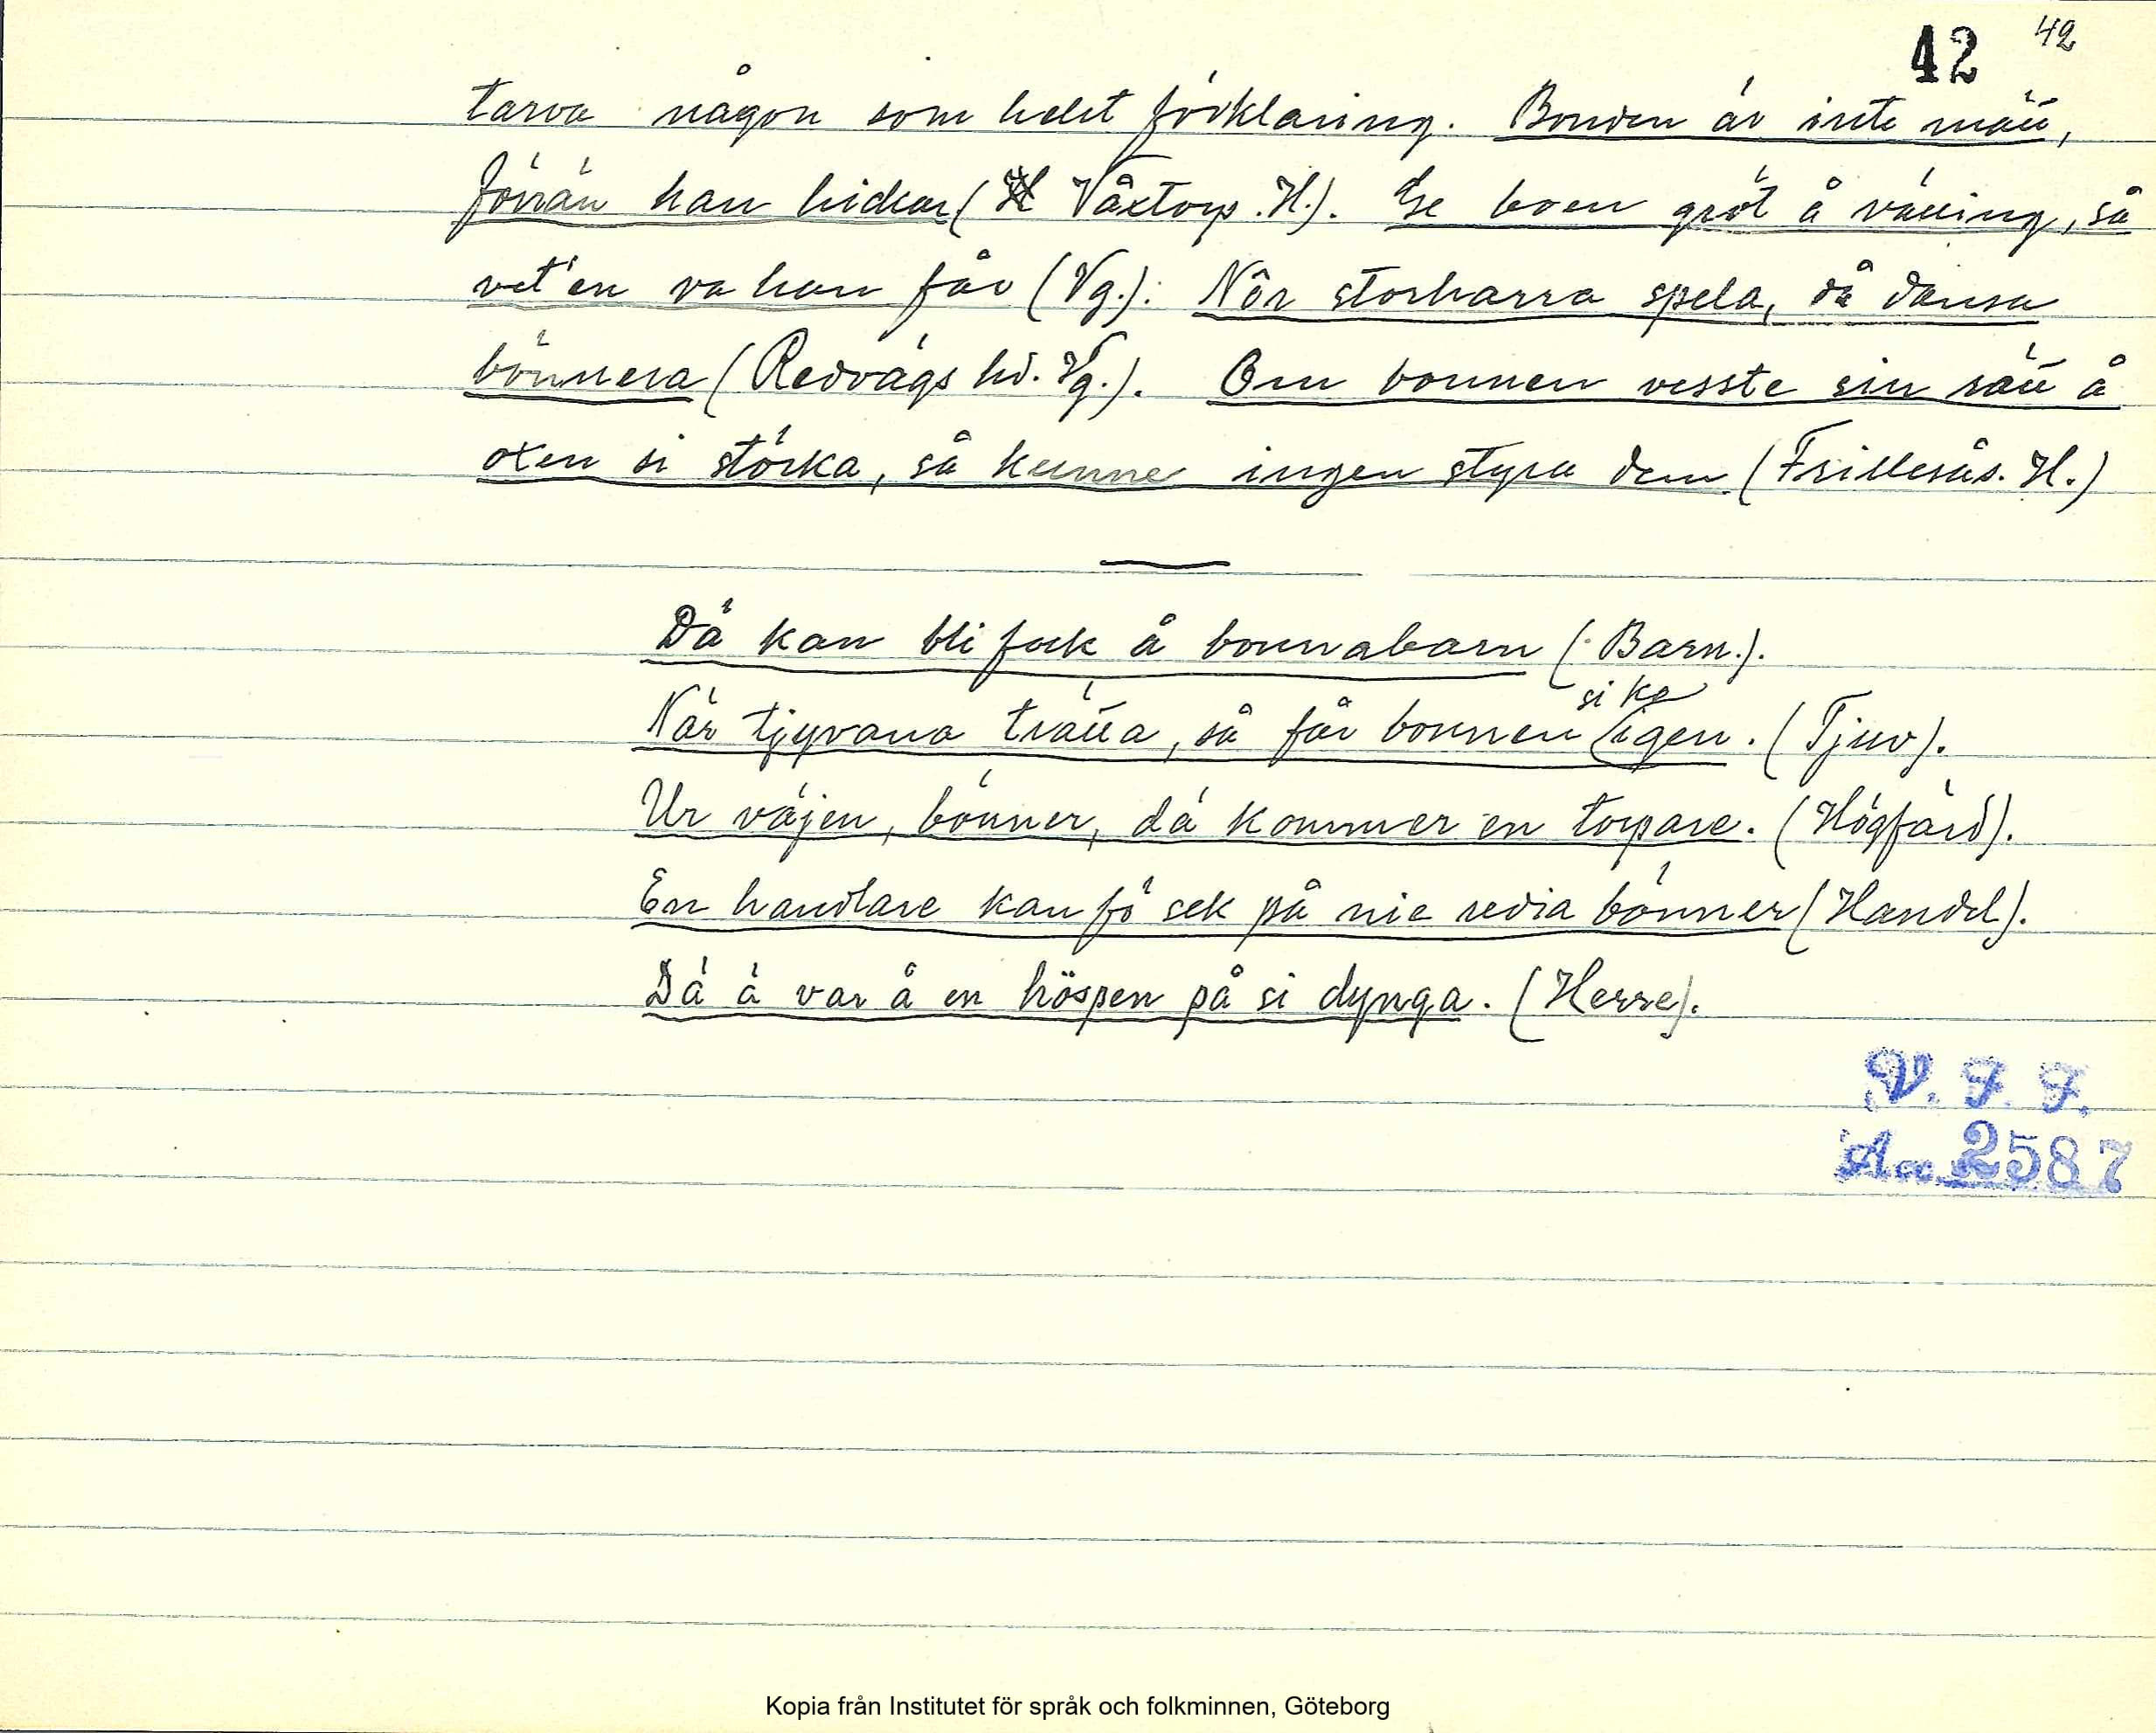 42 42
tarva någon som helst förklaring. Bonden är inte mätt,
förrän han hickar (Våxtorp. H.). Ge boen gröt å välling, så
vet'en va han får (Vg.). Når storharra spela, då dansa
bönnera (Redvägs hd. Vg.). Om bonnen visste sin rätt å
oxen si störka, så kunne ingen styra dem. (Frillesås. H.)
Dä kan bli folk å bonnabarn (Barn.).
si ko
När tjyvana trätta, så får bonnen igen. (Tjuv).
Ur väjen, bönner, dä kommer en torpare. (Högfärd).
En handlare kan fö sek på nie redia bönner (Handel).
Dä ä var å en höspen på si dynga. (Herre).
V. F. F.
Acc. 2587
Kopia från Institutet för språk och folkminnen, Göteborg